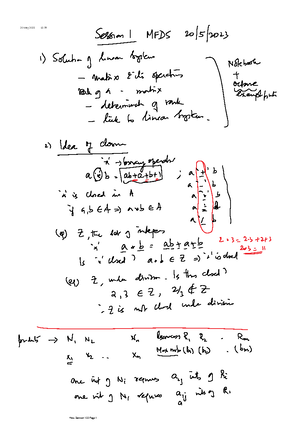 Session 1 MFDS 20/5/2023
1) Solution of linear system
- matrix & its operations
Rank of a matrix
- determinant of rank
- link to linear system.
Notebook
+
octave
2) Idea of closure
'*' → binary operator
a * b = ab+a+b+1 ; a + b
a - b
a · b
a / b
'*' is closed in A
if a,b ∈ A ⇒ a*b ∈ A
(eg) Z, the set of integers
'*' a * b = ab+a+b
2*3 = 2·3+2+3
2*3 = 11
Is '*' closed? a*b ∈ Z ⇒ '*' is closed
(eg) Z, under division. Is this closed?
2, 3 ∈ Z, 2/3 ∉ Z
∴ Z is not closed under division
products → N₁ N₂ Xn Resources R₁ R₂ . Rm
x₁ x₂ .. xn (b₁) (b₂) . (bm)
one unit of Ni requires aij units of Rj
one unit of Ni requires aij units of Ri